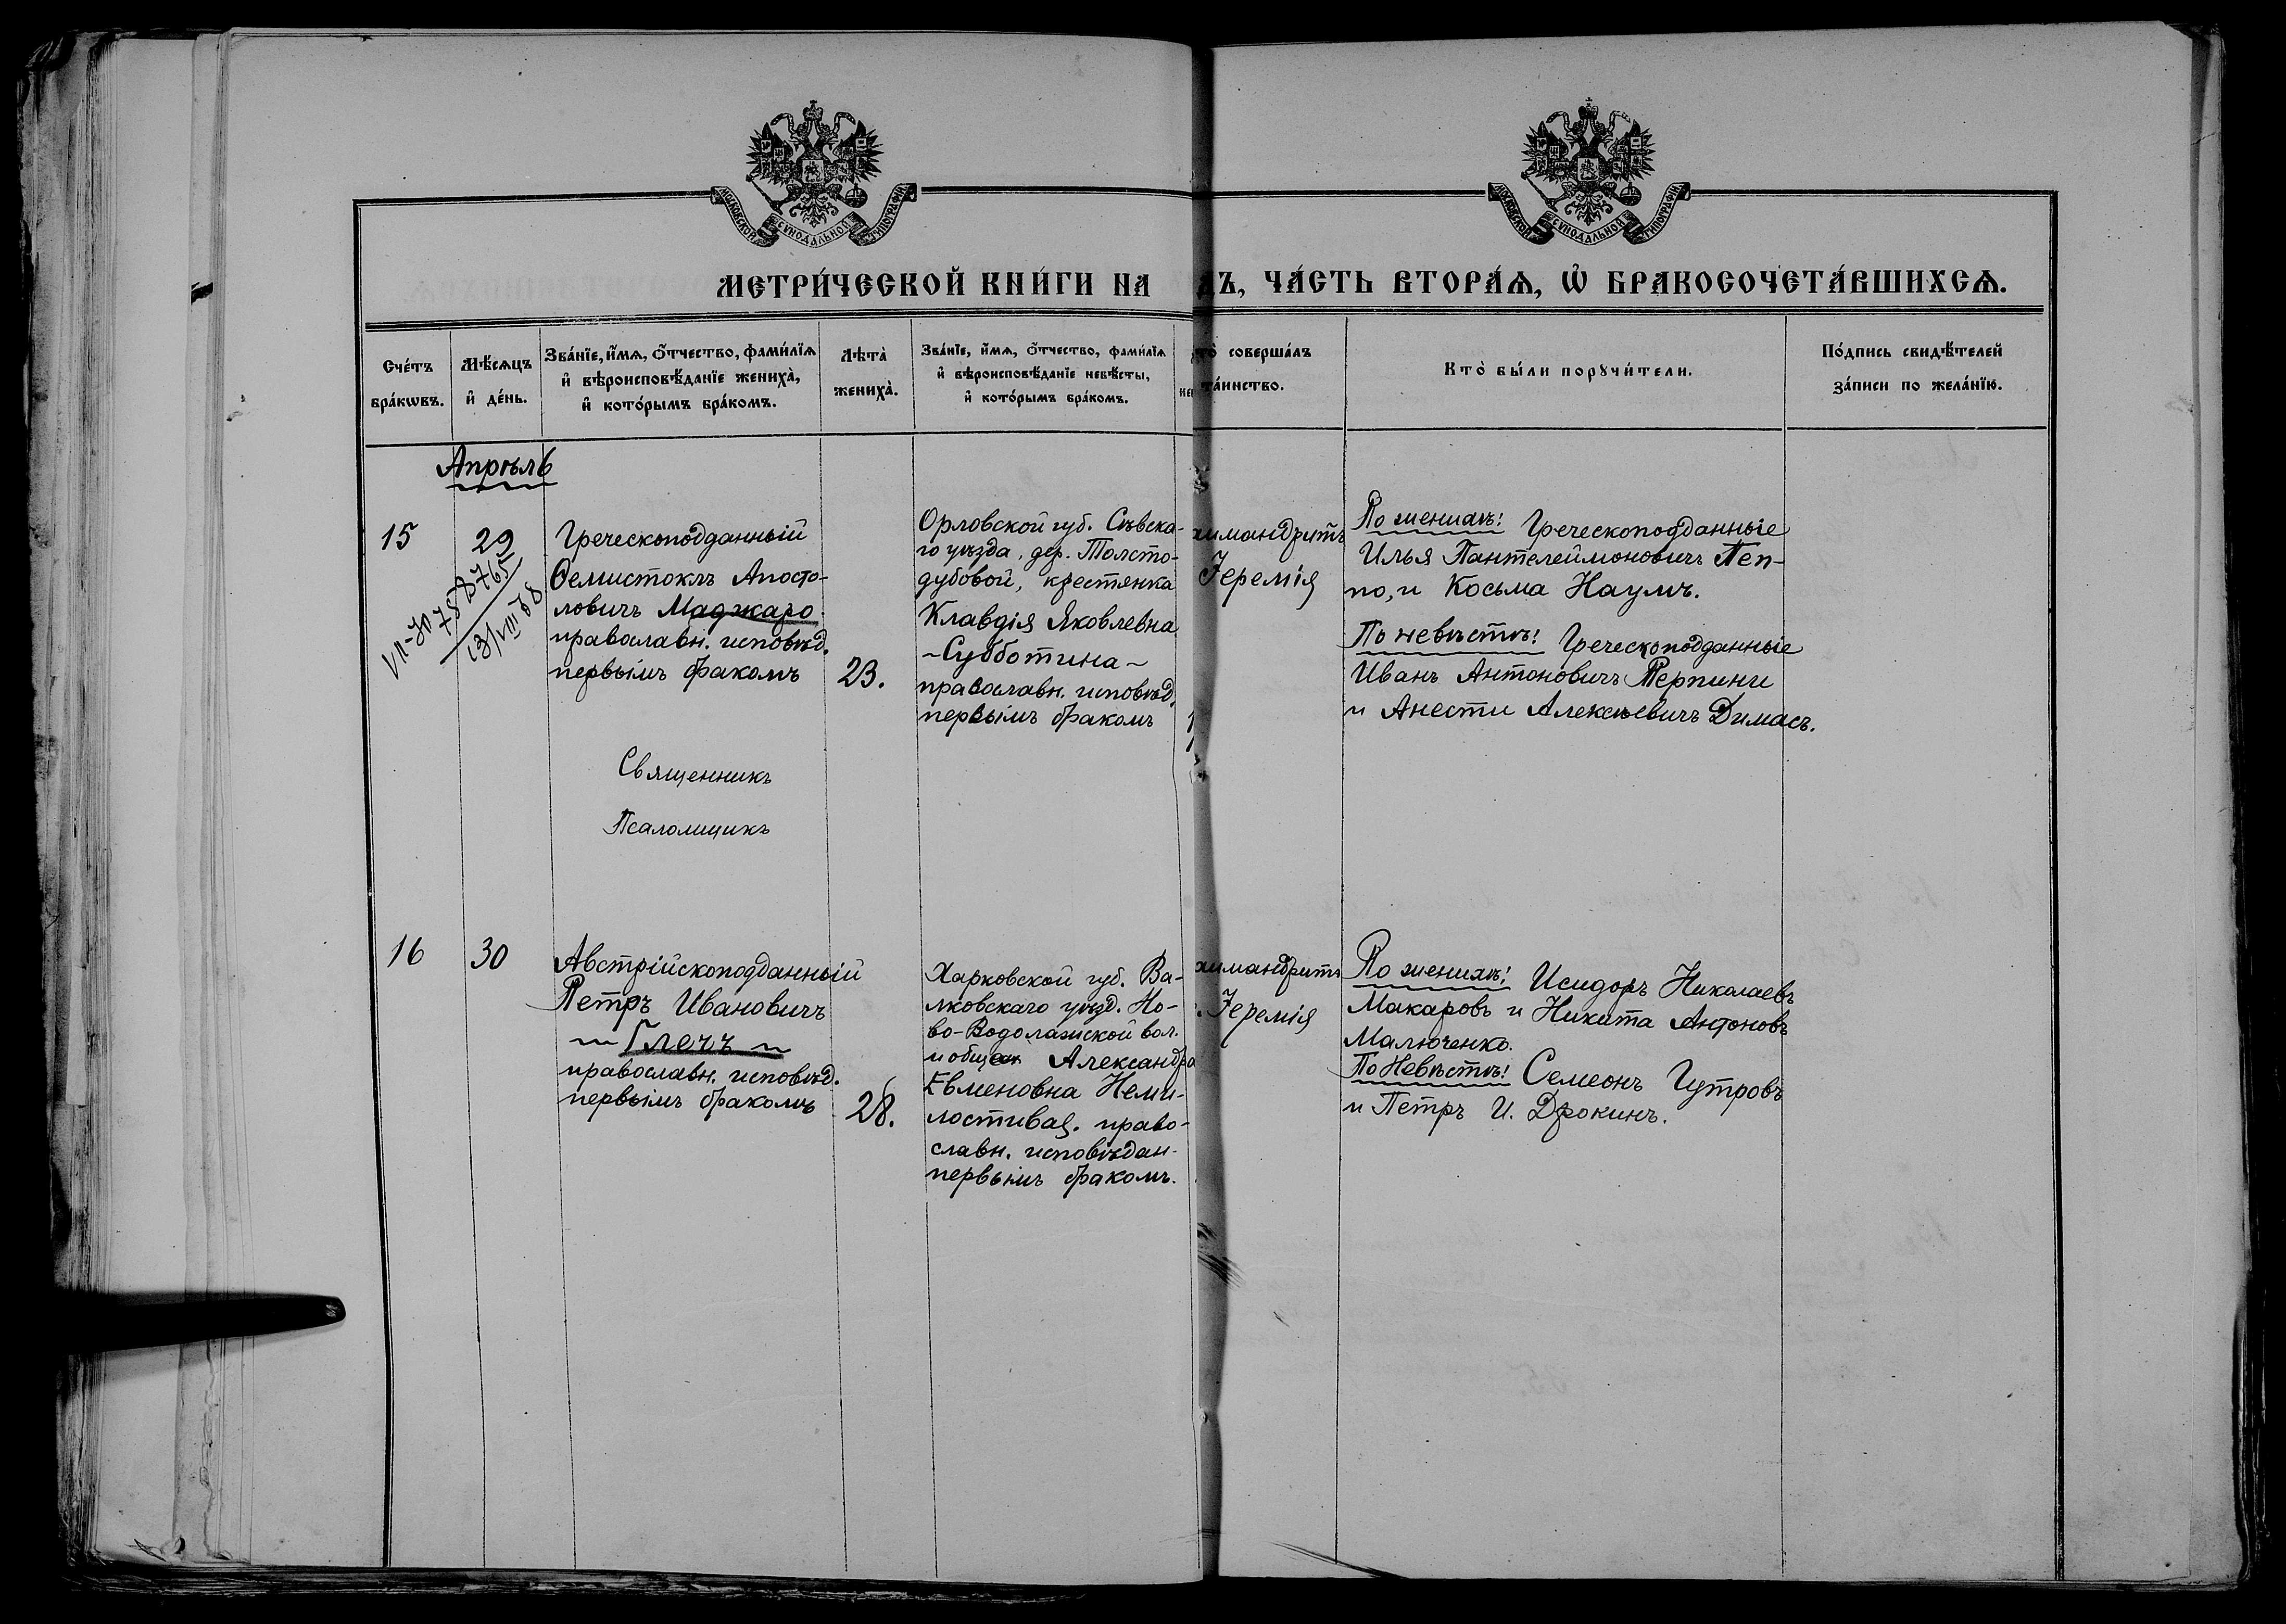 МОСКОВСКОЙ СѴНОДАЛЬНОЙ ТИПОГРАФІИ
МОСКОВСКОЙ СѴНОДАЛЬНОЙ ТИПОГРАФІИ
МЕТРИ́ЧЕСКОЙ КНИ́ГИ НА
ДЪ, ЧА́СТЬ ВТОРА́Ѧ, Ѽ БРАКОСОЧЕТА́ВШИХСѦ.
Сче́тъ
бра́кѡвъ.
Мѣ́сѧцъ
и҆ де́нь.
Зва́нїе, и҆́мѧ, ѻ҆́тчество, фами́лїѧ
и҆ вѣроисповѣ́данїе жениха̀,
и҆ кото́рымъ бра́комъ.
Лѣта̀
жениха̀.
Зва́нїе, и҆́мѧ, ѻ҆́тчество, фами́лїѧ
и҆ вѣроисповѣ́данїе невѣ́сты,
и҆ кото́рымъ бра́комъ.
то̀ соверша́лъ
та́инство.
Кто̀ бы́ли порꙋчи́тели.
По́дпись свидѣ́телей
за́писи по жела́нїю.
Апрѣль
15
29
8765
13/VIII 68
Греческоподданный
Ѳемистоклъ Апосто-
ловичъ Маджаро
православн. исповѣд.
первымъ бракомъ
23.
Орловской губ. Сѣвска-
го уѣзда, дер. Толсто-
дубовой, крестянка
Клавдія Яковлевна
-Субботина-
православн. исповѣд.
первымъ бракомъ
химандритъ
Іеремія
По женихѣ: Греческоподданные
Илья Пантелеймоновичъ Пеп-
по, и Косьма Наумъ.
По невѣстѣ: Греческоподданные
Иванъ Антоновичъ Терпини
и Анести Алексѣевичъ Димасъ.
Священникъ
Псаломщикъ
16
30
Австрійскоподданный
Петръ Ивановичъ
Глечъ
православн. исповѣд.
первымъ бракомъ
28.
Харковской губ. Ва-
лковскаго уѣзд. Но-
во-Водолажской вол.
и общ. Александра
Евменовна Неми-
лостивая. право-
славн. исповѣдан.
первымъ бракомъ.
химандритъ
Іеремія
По жениху: Исидоръ Николаевъ
Макаровъ и Никита Антоновъ
Малюченко.
По Невѣстѣ: Семеонъ Гутровъ
и Петръ И. Дрокинъ.